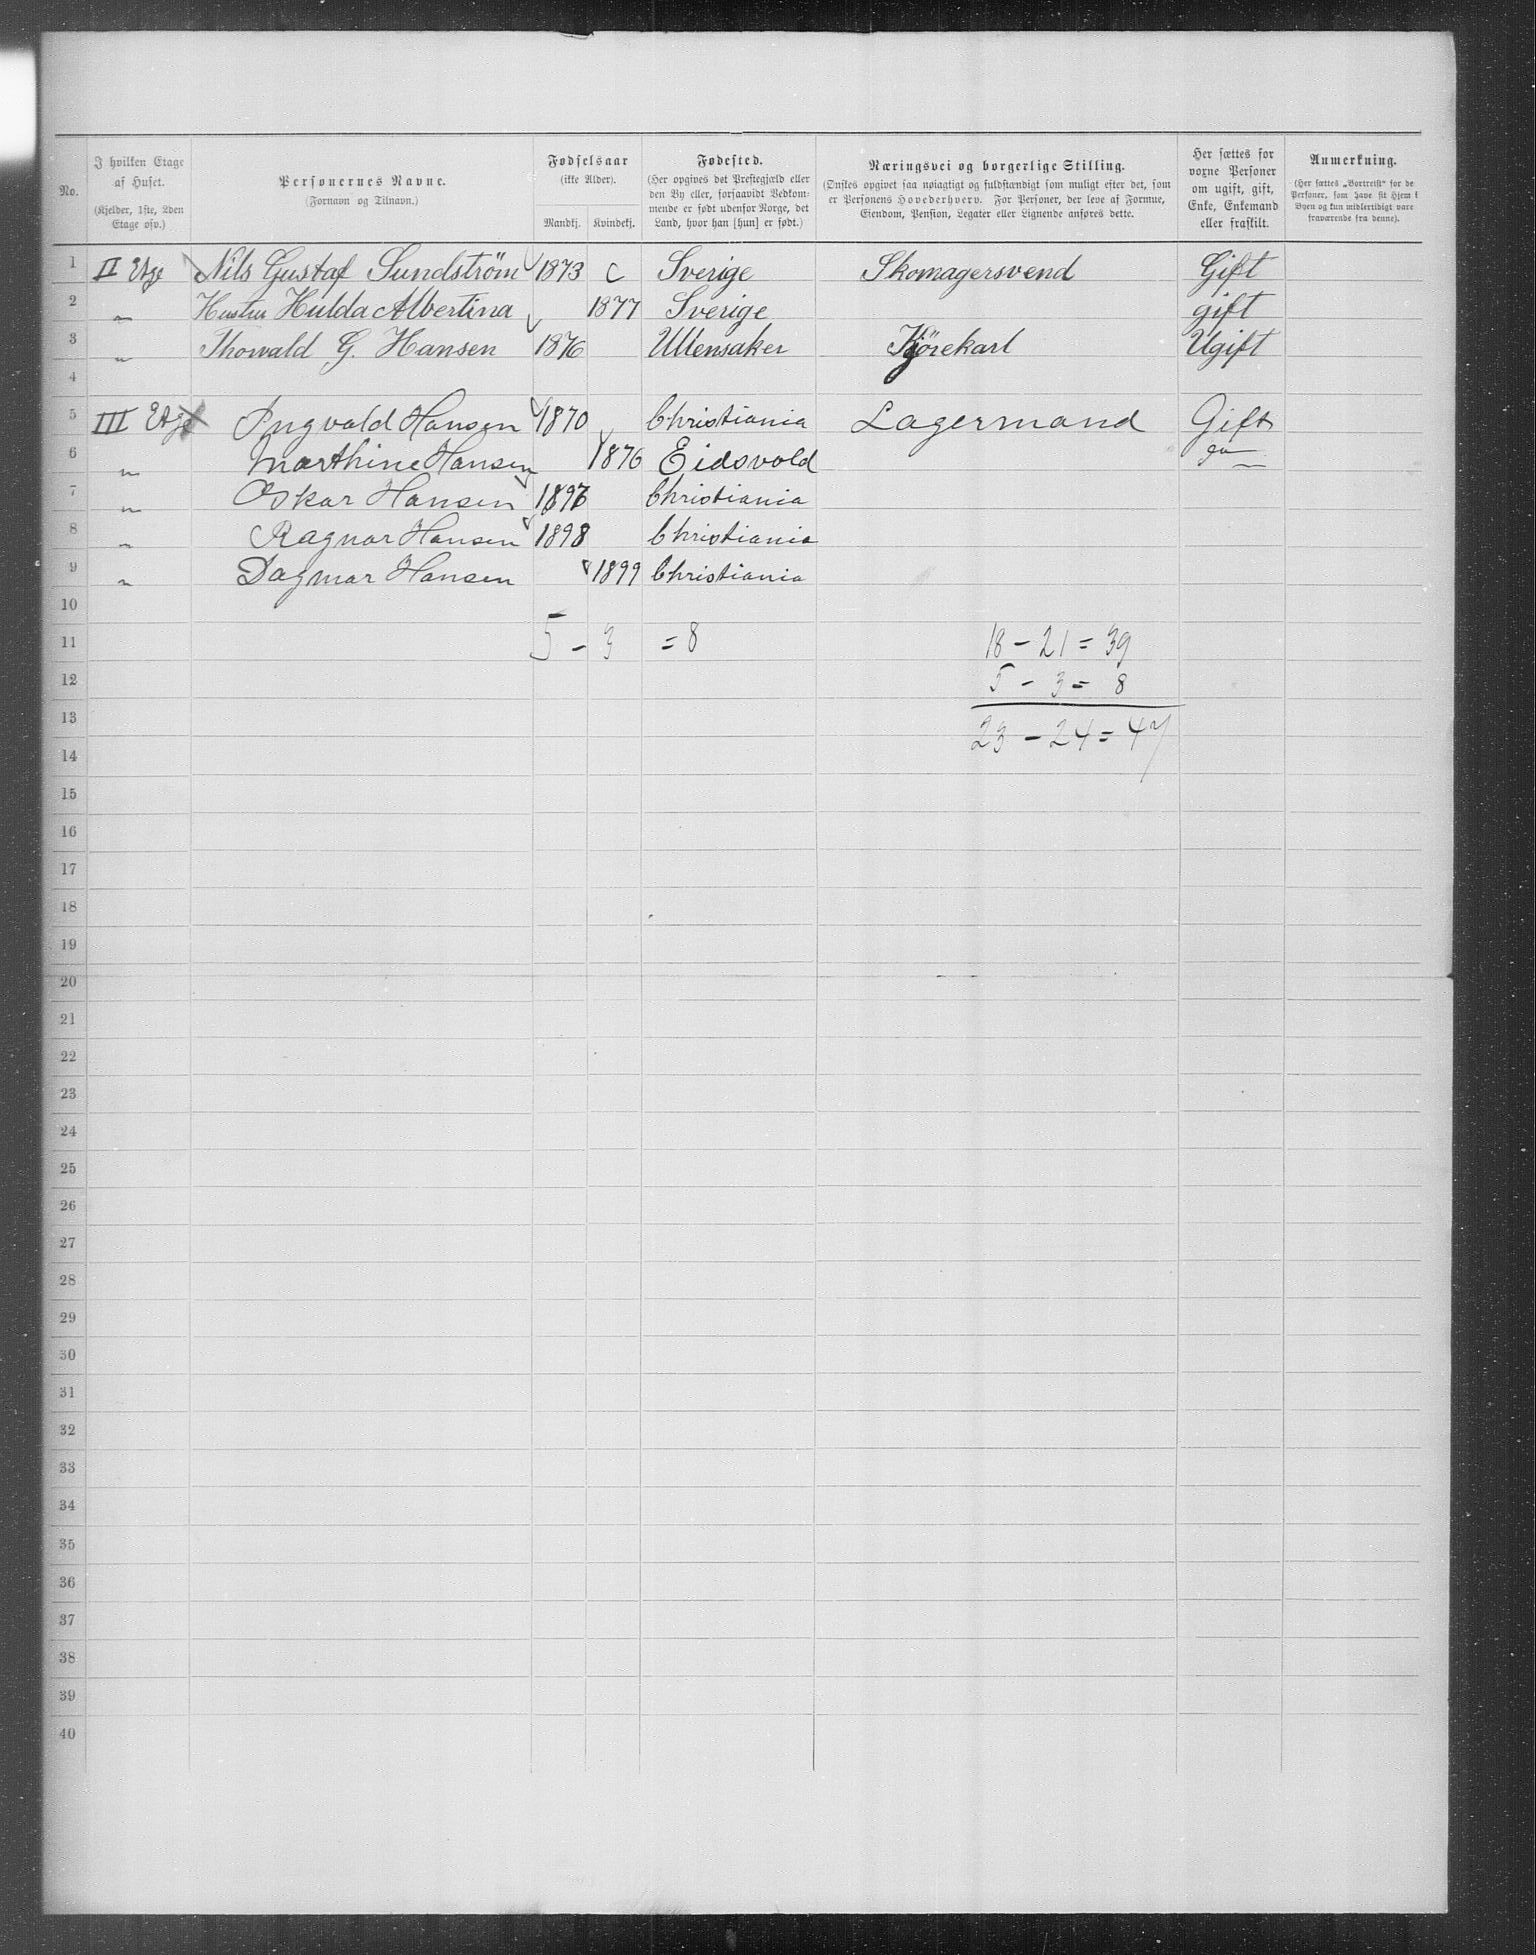 No.
I hvilken Etage af Huset.
(Kjelder, 1ste, 2den Etage osv.)
Personernes Navne.
(Fornavn og Tilnavn.)
Fødselsaar
(ikke Alder).
Mandkj. Kvindekj.
Fødested.
(Her opgives det Prestegjæld eller den By eller, forsaavidt Vedkommende er født udenfor Norge, det Land, hvor han [hun] er født.)
Næringsvei og borgerlige Stilling.
(Ønskes opgivet saa nøiagtigt og fuldstændigt som muligt efter det, som er Personens Hovederhverv. For Personer, der leve af Formue, Eiendom, Pension, Legater eller Lignende anføres dette.
Her sættes for voxne Personer om ugift, gift, Enke, Enkemand eller fraskilt.
Anmerkning.
(Her sættes „Bortreist“ for de Personer, som have sit Hjem i Byen og kun midlertidigt vare fraværende fra denne).
1 II Etge Nils Gustaf Sundström 1873 c Sverige Skomagersvend Gift
2 " Hustru Hulda Albertina 1877 Sverige gift
3 " Thorvald G. Hansen 1876 Ullensaker Kjörekarl Ugift
4
5 III Etge Ingvald Hansen 1870 Christiania Lagermand Gift
6 " Marthine Hansen 1876 Eidsvold
7 " Oskar Hansen 1897 Christiania
8 " Ragnar Hansen 1898 Christiania
9 " Dagmar Hansen 1899 Christiania
10
11 5 - 3 = 8 18 - 21 = 39
12 5 - 3 = 8
13 23 - 24 = 47
14
15
16
17
18
19
20
21
22
23
24
25
26
27
28
29
30
31
32
33
34
35
36
37
38
39
40